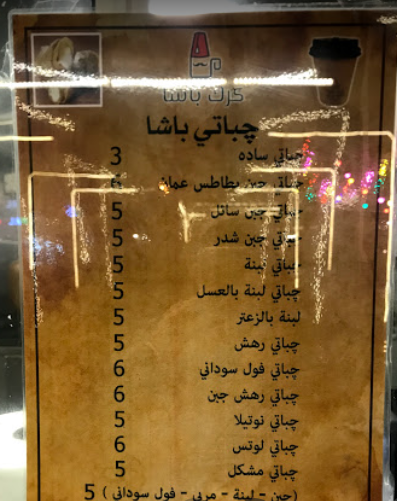 كرك باشا
چباتي باشا
چباتي ساده 3
چباتي جبن بطاطس عمان 6
چباتي جبن سائل 5
چباتي جبن شدر 5
چباتي لبنة 5
چباتي لبنة بالعسل 5
لبنة بالزعتر 5
چباتي رهش 5
چباتي فول سوداني 6
چباتي رهش جبن 6
چباتي نوتيلا 5
چباتي لوتس 6
چباتي مشكل 5
(جبن - لبنة - مربى - فول سوداني) 5